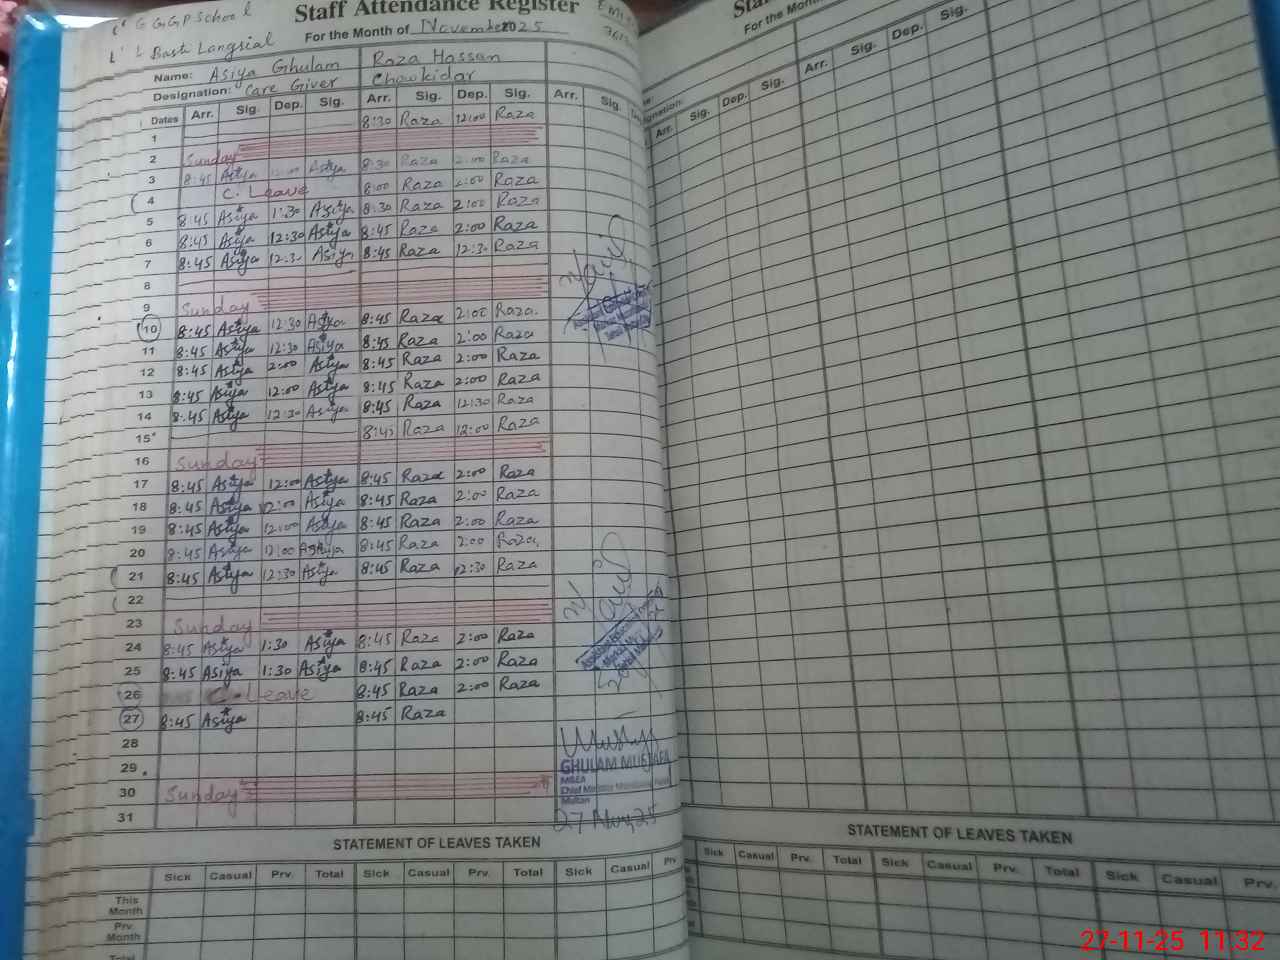 G.G.P School
Basti Langsial
Staff Attendance Register
For the Month of November 2025
Name: Asiya Ghulam Raza Hassan
Designation: Care Giver Chowkidar
Dates Arr. Sig. Dep. Sig. Arr. Sig. Dep. Sig. Arr. Sig.
1 8:30 Raza 12:00 Raza
2 Sunday
3 8:45 Asiya Asiya 8:30 Raza 2:00 Raza
4 C. Leave 8:00 Raza 2:00 Raza
5 8:45 Asiya 1:30 Asiya 8:30 Raza 2:00 Raza
6 8:45 Asiya 12:30 Asiya 8:45 Raza 2:00 Raza
7 8:45 Asiya 12:3 Asiya 8:45 Raza 12:3 Raza
8
9 Sunday
10 8:45 Asiya 12:30 Asiya 8:45 Raza 2:00 Raza.
11 8:45 Asiya 12:30 Asiya 8:45 Raza 2:00 Raza
12 8:45 Asiya 2:00 Asiya 8:45 Raza 2:00 Raza
13 8:45 Asiya 12:00 Asiya 8:45 Raza 2:00 Raza
14 8:45 Asiya 12:30 Asiya 8:45 Raza 12:30 Raza
15 8:45 Raza 12:00 Raza
16 Sunday
17 8:45 Asiya 12:00 Asiya 8:45 Raza 2:00 Raza
18 8:45 Asiya 12:00 Asiya 8:45 Raza 2:00 Raza
19 8:45 Asiya 12:00 Asiya 8:45 Raza 2:00 Raza
20 8:45 Asiya 12:00 Asiya 8:45 Raza 2:00 Raza
21 8:45 Asiya 12:30 Asiya 8:45 Raza 12:30 Raza
22
23 Sunday
24 8:45 Asiya 1:30 Asiya 8:45 Raza 2:00 Raza
25 8:45 Asiya 1:30 Asiya 8:45 Raza 2:00 Raza
26 C. Leave 8:45 Raza 2:00 Raza
27 8:45 Asiya 8:45 Raza
28
29
30 Sunday
31
GHULAM MUSTAFA
MEA
Chief Minister Monitoring
Multan
27 Nov, 25
STATEMENT OF LEAVES TAKEN
Sick Casual Prv. Total Sick Casual Prv. Total Sick Casual Prv
This Month
Prv. Month
Total
For the Month
Arr. Sig. Dep. Sig. Arr. Sig. Dep. Sig.
STATEMENT OF LEAVES TAKEN
Sick Casual Prv. Total Sick Casual Prv. Total Sick Casual Prv.
27-11-25 11:32